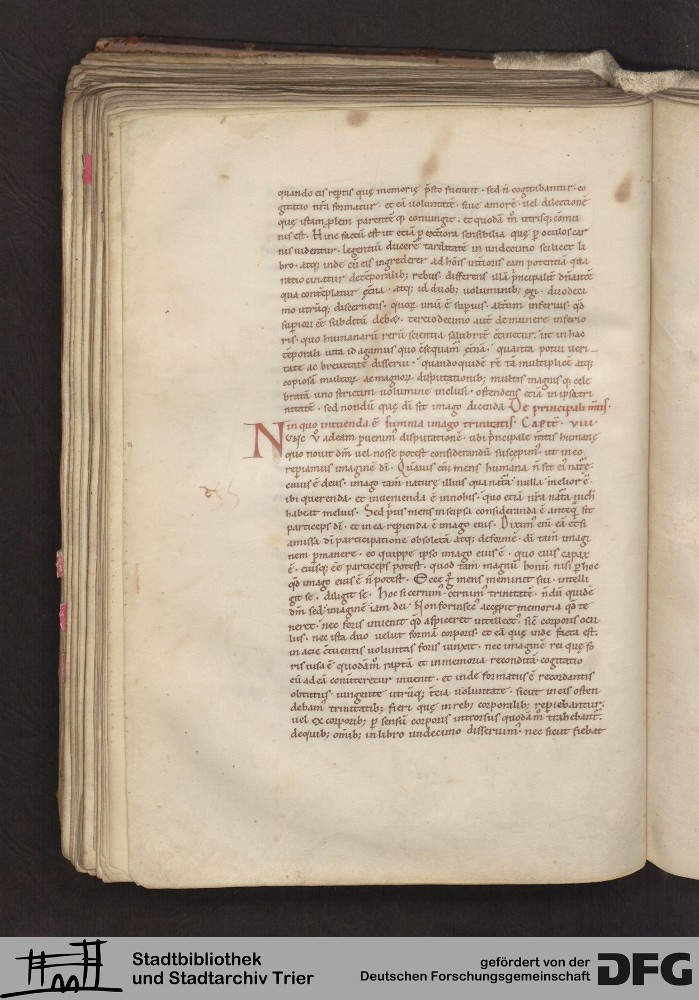 quando eis reptis quę memorię p̄sto fuerunt · sed n̄ cogitabantur · co
gitatio nr̄a formatur · et eā uoluntatē · siue amorē · uel dilectionē
quę istam plem parentēq; coniungit · et quodā m̄ utrisq; cōmu
nis est. Hinc factū est ut etiā p exteriora sensibilia quę p oculos car
nis uidentur · legentiū ducerē tarditatē in undecimo scilicet li
bro · atq; inde cū eis ingrederer ad hōis interioris eam potentiā qua
ratiocinatur de tēporalib; rebus · differens illā p̄ncipalit̄ dn̄antē
qua contēplatur ęt̄na · atq; id duob; uoluminib; egi · duodeci
mo utrūq; discernens · quoꝝ unū ē supius · alt̄um inferius · qd̄
supiori eē subditū debet · tertiodecimo aut̄ de munere inferio
ris · quo humanarū rerū scientia salubrit̄ c̄tinetur · ut in hac
tēporali uita id agamus quo c̄sequam̄ ęt̄nā · quanta potui ueri
tate ac breuitate disserui · quandoquidē rē tā multiplicē atq;
copiosā multoꝝ ac magnoꝝ disputationib; multis magnisq; cele
bratā uno strictim uolumine inclusi · ostendens etiā in ipsa tri
nitatē · sed nondū quę dī sit imago dicenda. De principali m̄tis ·
in quo intuenda ē summa imago trinitatis Capit̄ · VIII ·
Nunc ů adeam p̄uenim̄ disputationē · ubi p̄ncipale m̄tis humanę
quo nouit dm̄ uel nosse potest considerandū suscepim̄ · ut in eo
repiamus imaginē dī. Quāuis enī mens humana n̄ sit ei natę ·
cuius ē deus · imago tam̄ naturę illius qua nat̄a nulla melior ē ·
ibi querenda · et inuenienda ē in nobis · quo etiā nr̄a nat̄a nichil
habeat melius. Sed prius mens in se ipsa consideranda ē anteq̄ sit
particeps dī · et in ea repienda ē imago eius. Diximus enī eā etsi
amissa dī participatione obsoletā atq; deformē · dī tam̄ imagi
nem pmanere · eo quippe ipso imago eius ē · quo eius capax
ē · eiusq; eē particeps potest · quod tam magnū bonū nisi p hoc
qd̄ imago eius ē n̄ potest. Ecce g̊ mens meminit sui · intelli
git se · diligit se. Hoc si cernim̄ · cernim̄ trinitatē · n̄dū quidē
dm̄ sed imaginē iam dei. Non forinsec̄ accepit memoria qd̄ te
neret · nec foris inuenit qd̄ aspiceret intellect̄ · sic̄ corporis ocu
lus · nec ista duo uelut formā corporis · et eā quę inde facta est ·
in acie c̄tuentis uoluntas foris iunxit · nec imaginē rei quę fo
ris uisa ē quodām̄ raptā et in memoria reconditā cogitatio
cū ad eā conuerteretur inuenit · et inde formatus ē recordantis
obtutus · iungente utrūq; tertia uoluntate · sicut in eis osten
debam̄ trinitatib; fieri quę in reb; corporalib; repiebantur ·
uel ex corporib; p sensū corporis introrsus quodām̄ trahebant̄ ·
de quib; om̄ib; in libro undecimo disseruim̄ · nec sicut fiebat
Stadtbibliothek
und Stadtarchiv Trier
gefördert von der
Deutschen Forschungsgemeinschaft
DFG